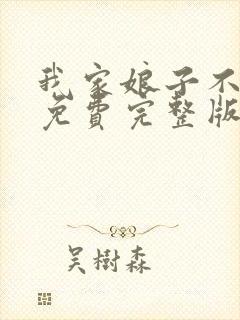 我家娘子不
免費完整版
吳樹森